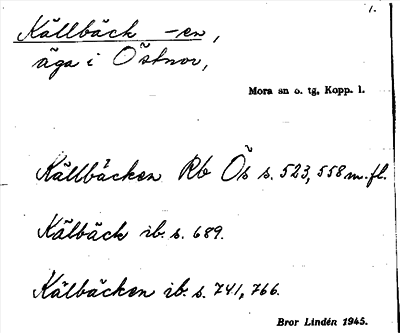 1.
Källbäck -en,
äga i Östnor,
Mora sn o. tg, Kopp. l.
Källbäcken Rb Ös s. 523, 558 m. fl.
Kälbäck ib. s. 689.
Kälbäcken ib. s. 741, 766.
Bror Lindén 1945.